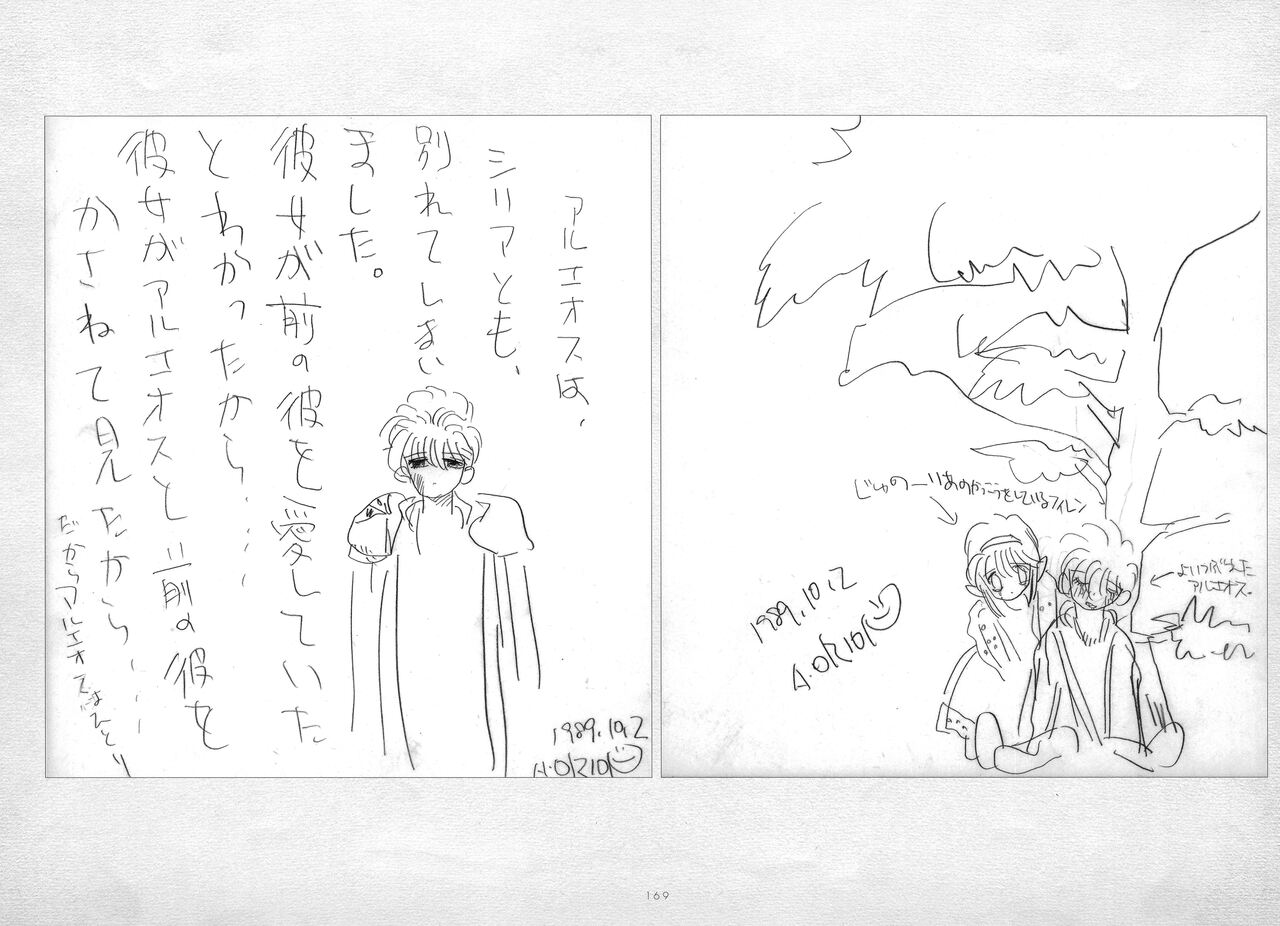 アルエオスは、
シリアとも、
別れてしまい
ました。
彼女が前の彼を愛していた
とわかったから……
彼女がアルエオスと前の彼を
かさねて見たから……
だからアルエオスはひとり
1989.10.2
A.ORIOR
じゅのーりあのかっこうをしているフィレン
よいつぶれた
アルエオス。
1989.10.2
A.ORIOR
169